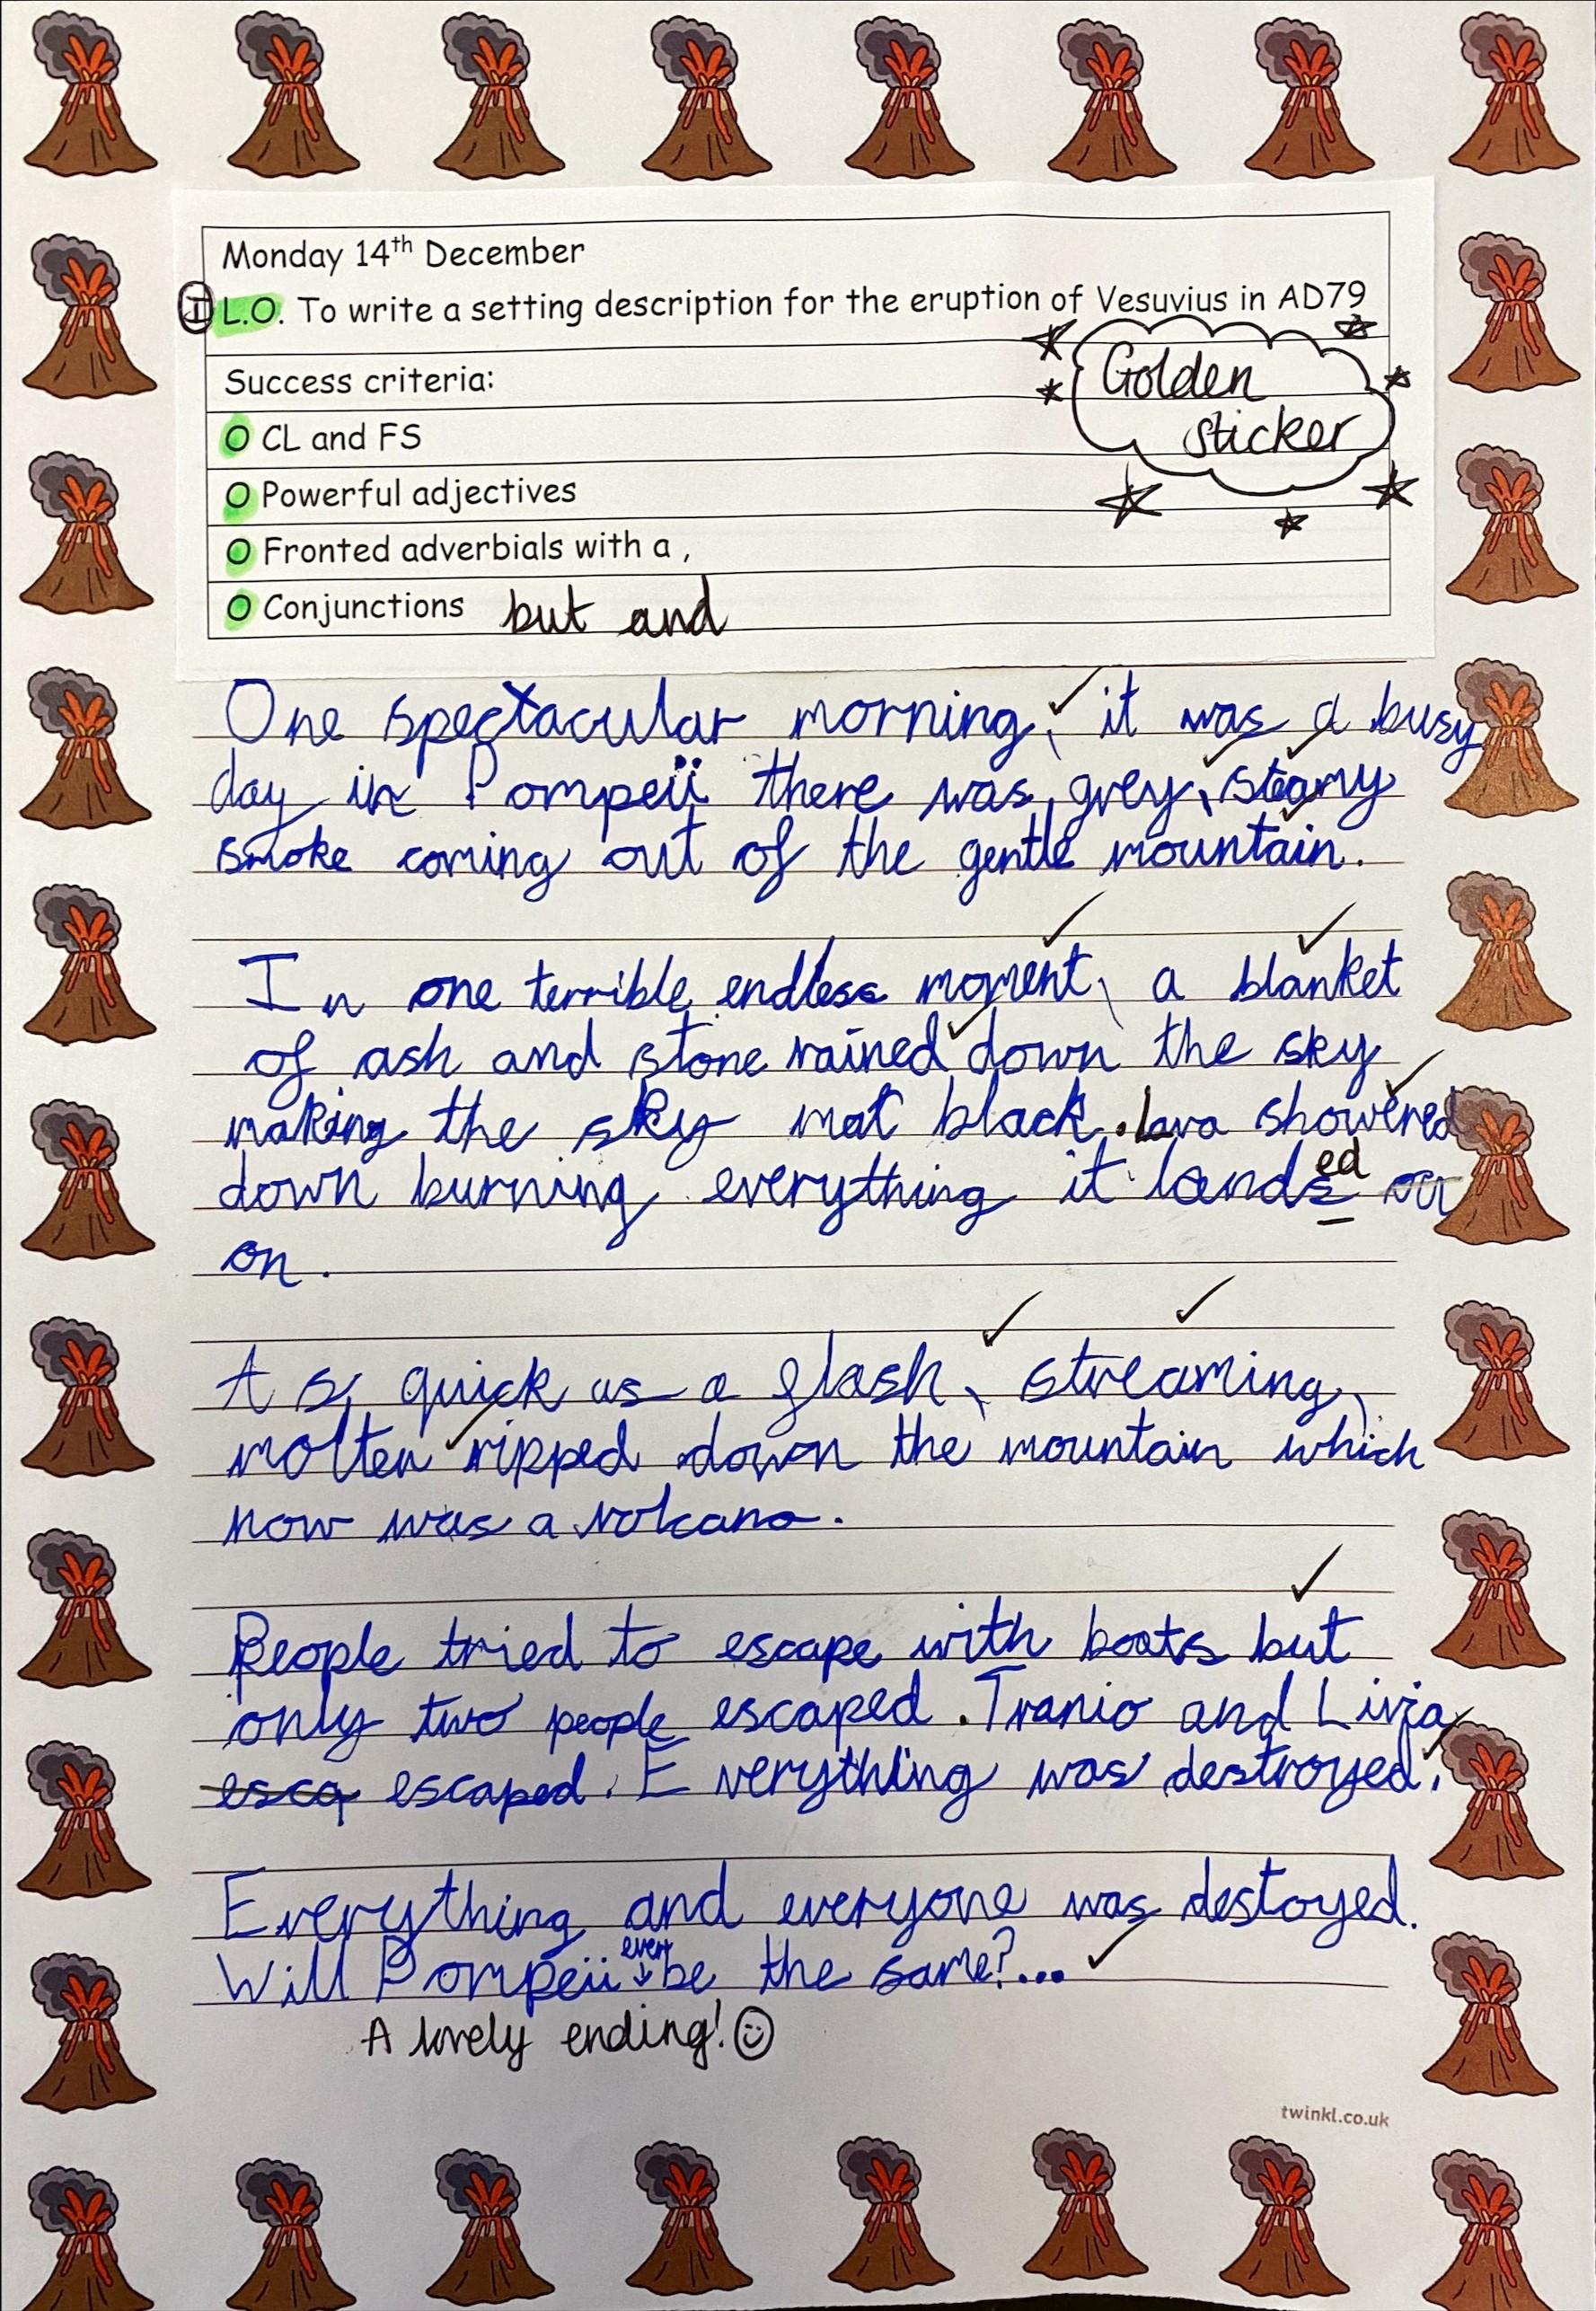 Monday 14th December
I L.O. To write a setting description for the eruption of Vesuvius in AD79
Success criteria:
Golden
sticker
O CL and FS
O Powerful adjectives
O Fronted adverbials with a ,
O Conjunctions but and
One spectacular morning, it was a busy
day in Pompeii there was, grey, steamy
smoke coming out of the gentle mountain.
In one terrible endless moment, a blanket
of ash and stone rained down the sky
making the sky mat black. lava showered
ed
down burning everything it lands
on.
As quick as a flash, streaming,
molten ripped down the mountain which
now was a volcano.
People tried to escape with boats but
only two people escaped. Tranio and Livia
esca escaped. Everything was destroyed.
Everything and everyone was destoyed.
ever
Will Pompeii be the same?...
A lovely ending!
twinkl.co.uk